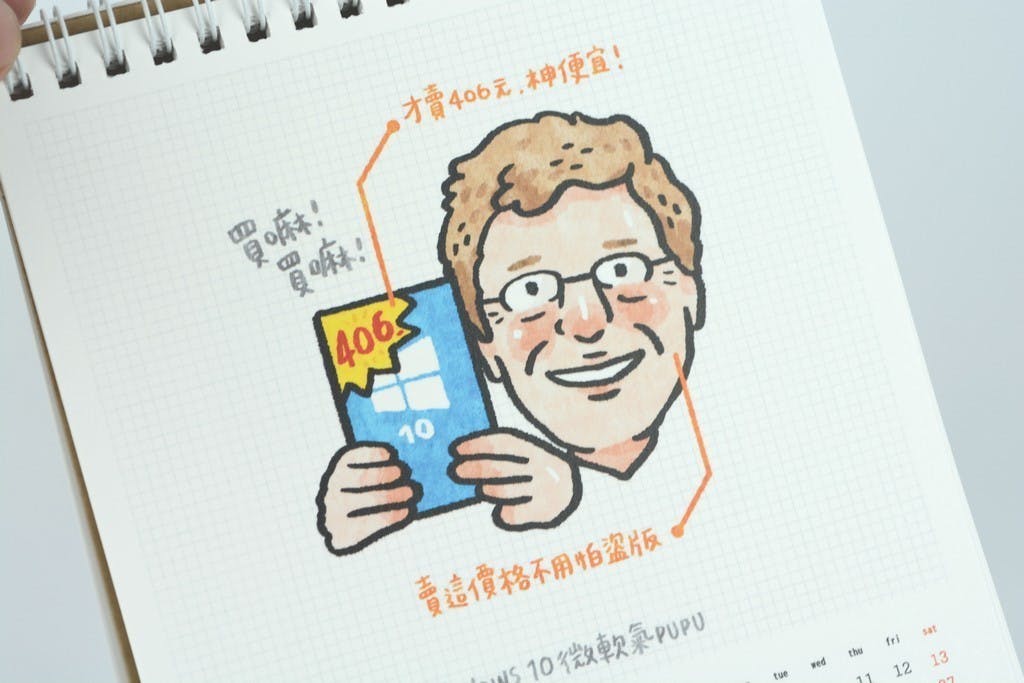 才賣406元,神便宜!
買嘛!
買嘛!
406.
10
賣這價格不用怕盜版
10微軟氣PUPU
tue wed thu fri sat
11 12 13